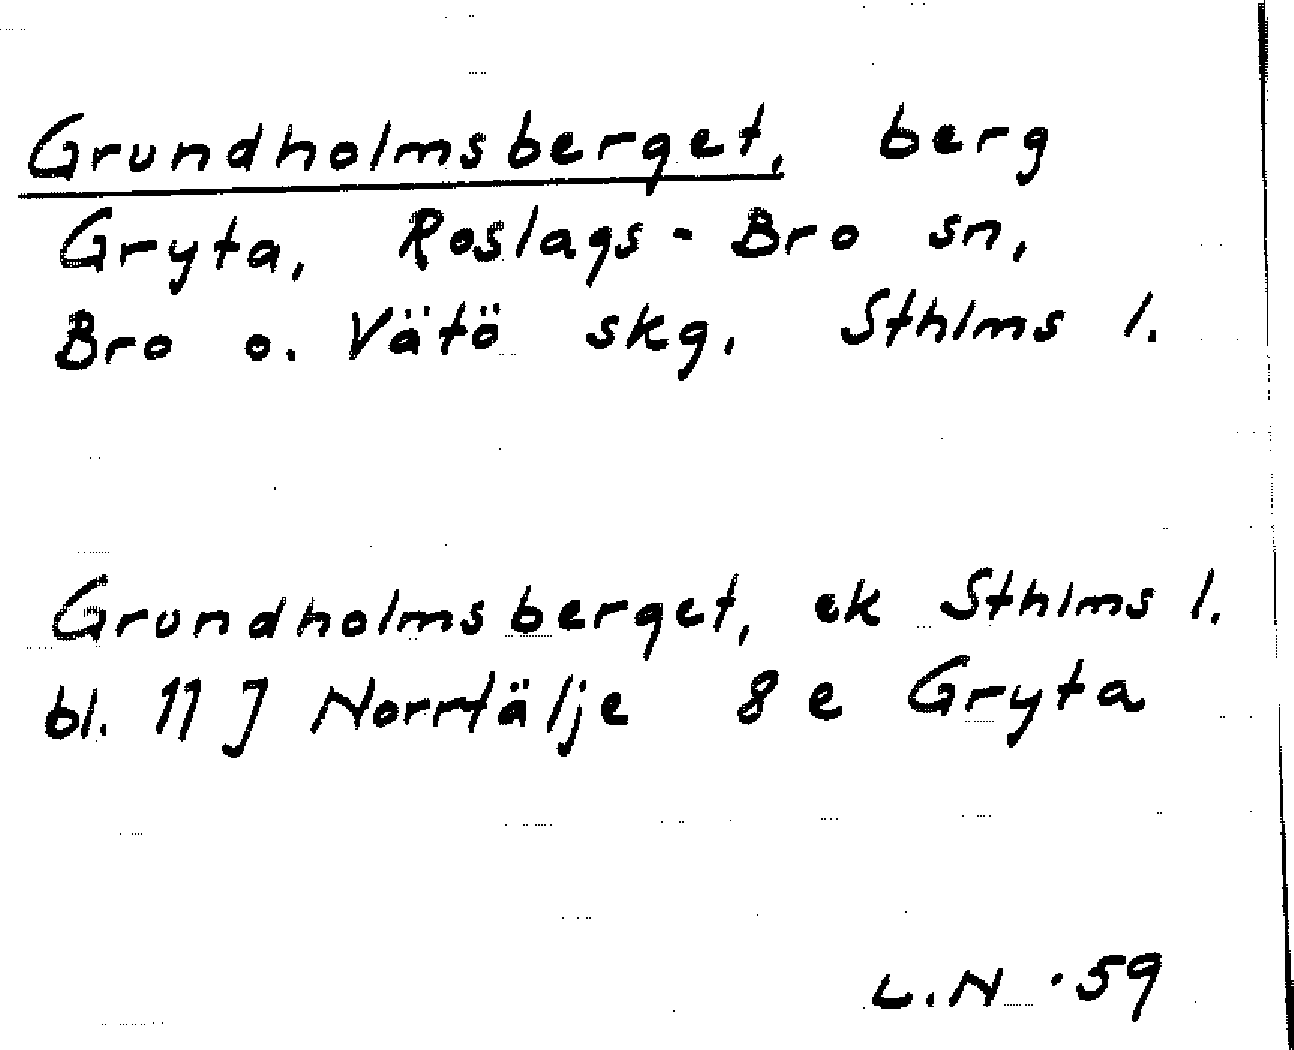 Grundholmsberget, berg
Gryta, Roslags-Bro sn,
Bro o. Vätö skg, Sthlms l.
Grundholmsberget, ek Sthlms l.
bl. 11 J Norrtälje 8 e Gryta
L.N. 59